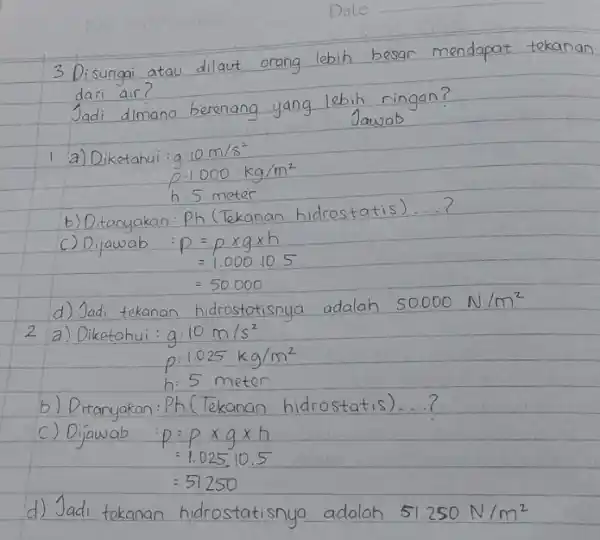 Date
3 Disungai atau dilaut orang lebih besar mendapat tekanan
dari air?
Jadi dimana berenang yang lebih ringan?
Jawab
1 a) Diketahui : g 10 m/s²
ρ 1000 kg/m²
h 5 meter
b) Ditanyakan : Ph (Tekanan hidrostatis)...?
c) Dijawab : p = ρ x g x h
= 1.000 10 5
= 50.000
d) Jadi tekanan hidrostatisnya adalah 50.000 N/m²
2 a) Diketahui : g : 10 m/s²
ρ : 1025 kg/m²
h : 5 meter
b) Ditanyakan : Ph (Tekanan hidrostatis)...?
c) Dijawab : p = ρ x g x h
= 1.025.10.5
= 51250
d) Jadi tekanan hidrostatisnya adalah 51 250 N/m²